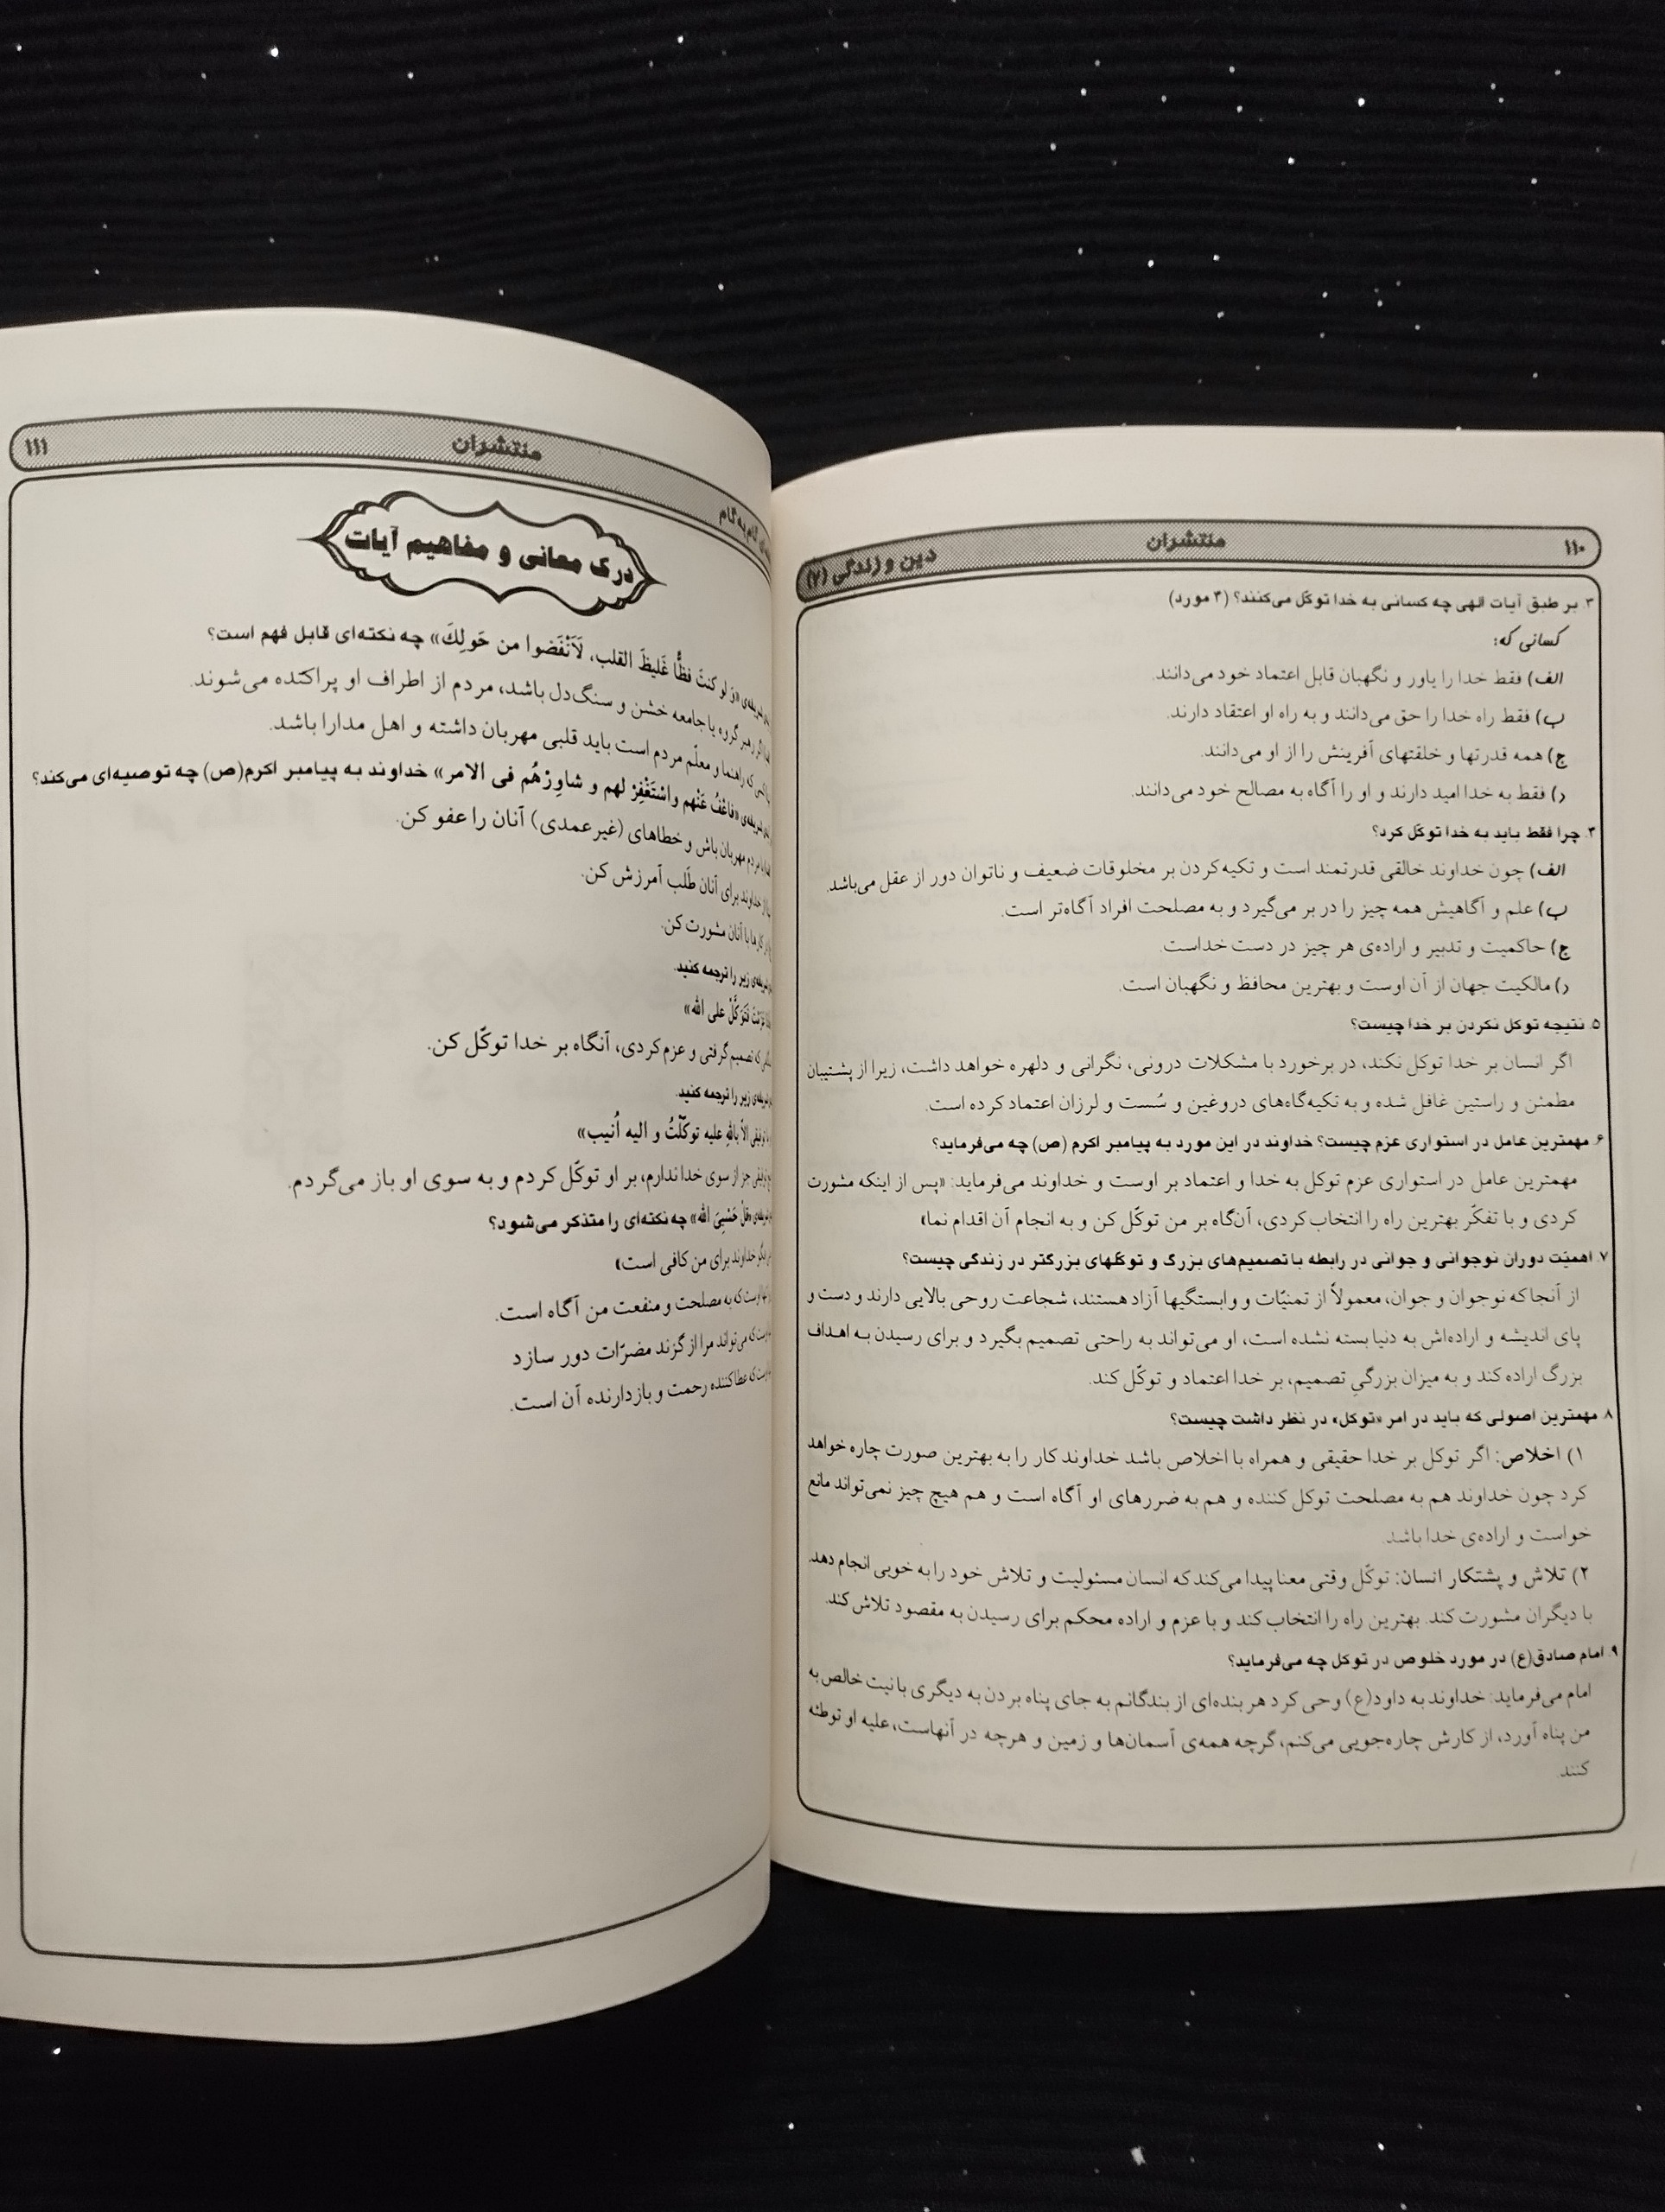 ۱۱۰
منتشران
دین و زندگی (۲)
۳. بر طبق آیات الهی چه کسانی به خدا توکّل می‌کنند؟ (۴ مورد)
کسانی که:
الف) فقط خدا را یاور و نگهبان قابل اعتماد خود می‌دانند.
ب) فقط راه خدا را حق می‌دانند و به راه او اعتقاد دارند.
ج) همه قدرتها و خلقتهای آفرینش را از او می‌دانند.
د) فقط به خدا امید دارند و او را آگاه به مصالح خود می‌دانند.
۴. چرا فقط باید به خدا توکّل کرد؟
الف) چون خداوند خالقی قدرتمند است و تکیه‌کردن بر مخلوقات ضعیف و ناتوان دور از عقل می‌باشد.
ب) علم و آگاهیش همه چیز را در بر می‌گیرد و به مصلحت افراد آگاه‌تر است.
ج) حاکمیت و تدبیر و اراده‌ی هر چیز در دست خداست.
د) مالکیت جهان از آن اوست و بهترین محافظ و نگهبان است.
۵. نتیجه توکل نکردن بر خدا چیست؟
اگر انسان بر خدا توکل نکند، در برخورد با مشکلات درونی، نگرانی و دلهره خواهد داشت، زیرا از پشتیبان
مطمئن و راستین غافل شده و به تکیه‌گاه‌های دروغین و سُست و لرزان اعتماد کرده است.
۶. مهمترین عامل در استواری عزم چیست؟ خداوند در این مورد به پیامبر اکرم (ص) چه می‌فرماید؟
مهمترین عامل در استواری عزم توکل به خدا و اعتماد بر اوست و خداوند می‌فرماید: «پس از اینکه مشورت
کردی و با تفکّر بهترین راه را انتخاب کردی، آن‌گاه بر من توکّل کن و به انجام آن اقدام نما»
۷. اهمیّت دوران نوجوانی و جوانی در رابطه با تصمیم‌های بزرگ و توکّلهای بزرگتر در زندگی چیست؟
از آنجا که نوجوان و جوان، معمولاً از تمنیّات و وابستگیها آزاد هستند، شجاعت روحی بالایی دارند و دست و
پای اندیشه و اراده‌اش به دنیا بسته نشده است، او می‌تواند به راحتی تصمیم بگیرد و برای رسیدن به اهداف
بزرگ اراده کند و به میزان بزرگیِ تصمیم، بر خدا اعتماد و توکّل کند.
۸. مهمترین اصولی که باید در امر «توکل» در نظر داشت چیست؟
۱) اخلاص: اگر توکل بر خدا حقیقی و همراه با اخلاص باشد خداوند کار را به بهترین صورت چاره خواهد
کرد چون خداوند هم به مصلحت توکل کننده و هم به ضررهای او آگاه است و هم هیچ چیز نمی‌تواند مانع
خواست و اراده‌ی خدا باشد.
۲) تلاش و پشتکار انسان: توکّل وقتی معنا پیدا می‌کند که انسان مسئولیت و تلاش خود را به خوبی انجام دهد.
با دیگران مشورت کند. بهترین راه را انتخاب کند و با عزم و اراده محکم برای رسیدن به مقصود تلاش کند.
۹. امام صادق(ع) در مورد خلوص در توکل چه می‌فرماید؟
امام می‌فرماید: خداوند به داود(ع) وحی کرد هر بنده‌ای از بندگانم به جای پناه بردن به دیگری با نیت خالص به
من پناه آورد، از کارش چاره‌جویی می‌کنم، گرچه همه‌ی آسمان‌ها و زمین و هرچه در آنهاست، علیه او توطئه
کنند.
گام به گام
منتشران
۱۱۱
درک معانی و مفاهیم آیات
«وَ لو کنتَ فظًّا غَلیظَ القلب، لَاَنْفَضوا من حَولِكَ» چه نکته‌ای قابل فهم است؟
رهبر گروه یا جامعه خشن و سنگ‌دل باشد، مردم از اطراف او پراکنده می‌شوند.
که راهنما و معلّم مردم است باید قلبی مهربان داشته و اهل مدارا باشد.
«فاعْفُ عَنْهم واسْتَغْفِرْ لهم و شاوِرْهُم فی الامر» خداوند به پیامبر اکرم(ص) چه توصیه‌ای می‌کند؟
مردم مهربان باش و خطاهای (غیرعمدی) آنان را عفو کن.
خداوند برای آنان طلب آمرزش کن.
کارها با آنان مشورت کن.
زیر را ترجمه کنید.
فَتَوَکَّلْ علی الله»
که تصمیم گرفتی و عزم کردی، آنگاه بر خدا توکّل کن.
زیر را ترجمه کنید.
توفیقی الاّ باللهِ علیه توکّلْتُ و الیه اُنیب»
توفیقی جز از سوی خدا ندارم، بر او توکّل کردم و به سوی او باز می‌گردم.
«قُلْ حَسْبِیَ الله» چه نکته‌ای را متذکر می‌شود؟
بگو خداوند برای من کافی است»
اوست که به مصلحت و منفعت من آگاه است.
که می‌تواند مرا از گزند مضرّات دور سازد
که عطاکننده رحمت و بازدارنده آن است.